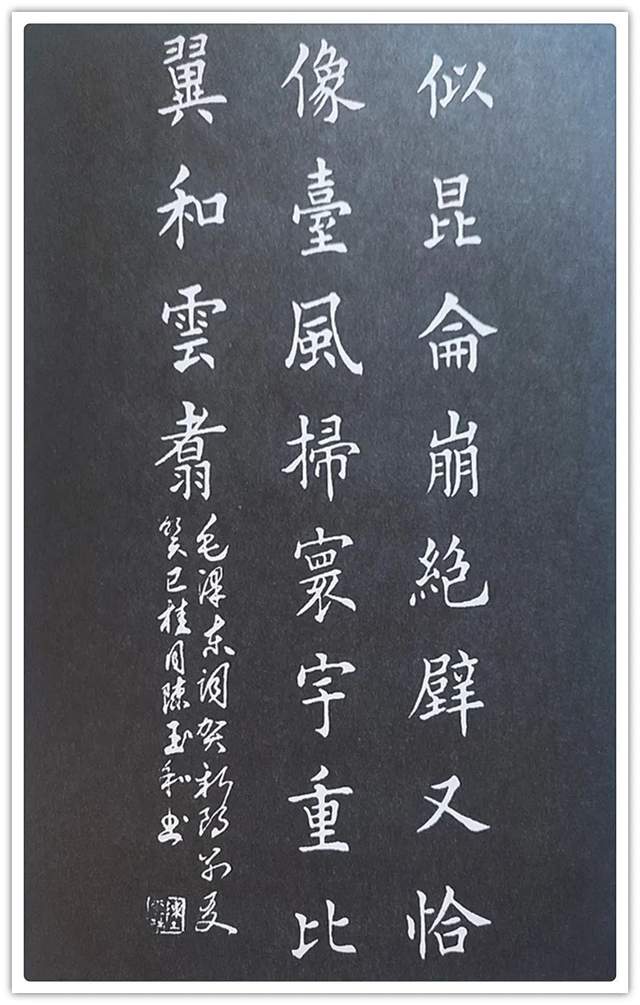 似昆侖崩絶壁又恰
像臺風掃寰宇重比
翼和雲翥
毛澤东词贺新郎别友
癸巳桂月陳玉和书